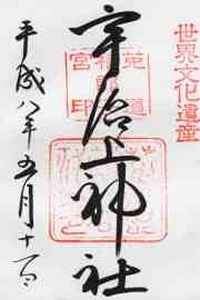 世界文化遺産
宇治上神社
平成八年五月十一日